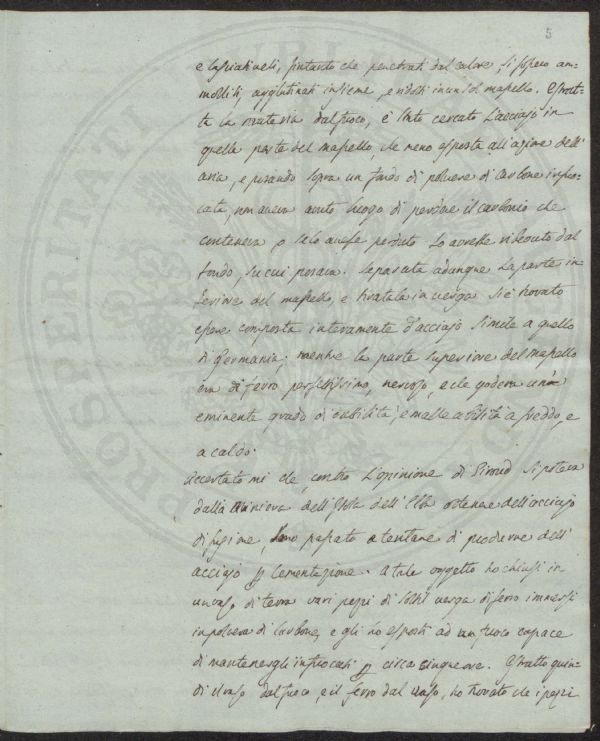 5
e lasciativeli, fintanto che penetrati dal calore, si siano am=
molliti, agglutinati insieme, e ridotti in un sol massello. Estrat=
ta la materia dal fuoco, è stato cercato l'acciajo in
quella parte del massello, che meno esposta all'azione dell'
aria, e posando sopra un fondo di polvere di carbone infuo=
cata, non aveva avuto luogo di perdere il carbonio che
conteneva o se lo avesse perduto lo avrebbe ribevuto dal
fondo, su cui posava. Separata adunque la parte in
feriore del massello, e tiratala in verga si è trovato
essere composta interamente d'acciajo simile a quello
di Germania; mentre la parte superiore del massello
era di ferro perfettissimo, nervoso, e che godeva un
eminente grado di duttilità, e malleabilità a freddo, e
a caldo.
Accertatomi che, contro l'opinione di si poteva
dalla miniera dell'Isola dell'Elba ottenere dell'acciajo
di fusione, sono passato a tentare di produrne dell'
acciajo p cementazione. A tale oggetto ho chiusi in
un vaso di terra vari pezzi di verga di ferro immersi
in polvere di carbone, e gli ho esposti ad un fuoco capace
di mantenergli infuocati p circa cinque ore. Estratto quin=
di il vaso dal fuoco, e il ferro dal vaso, ho trovato che i pezzi
PROSPERITATI PUBLICAE